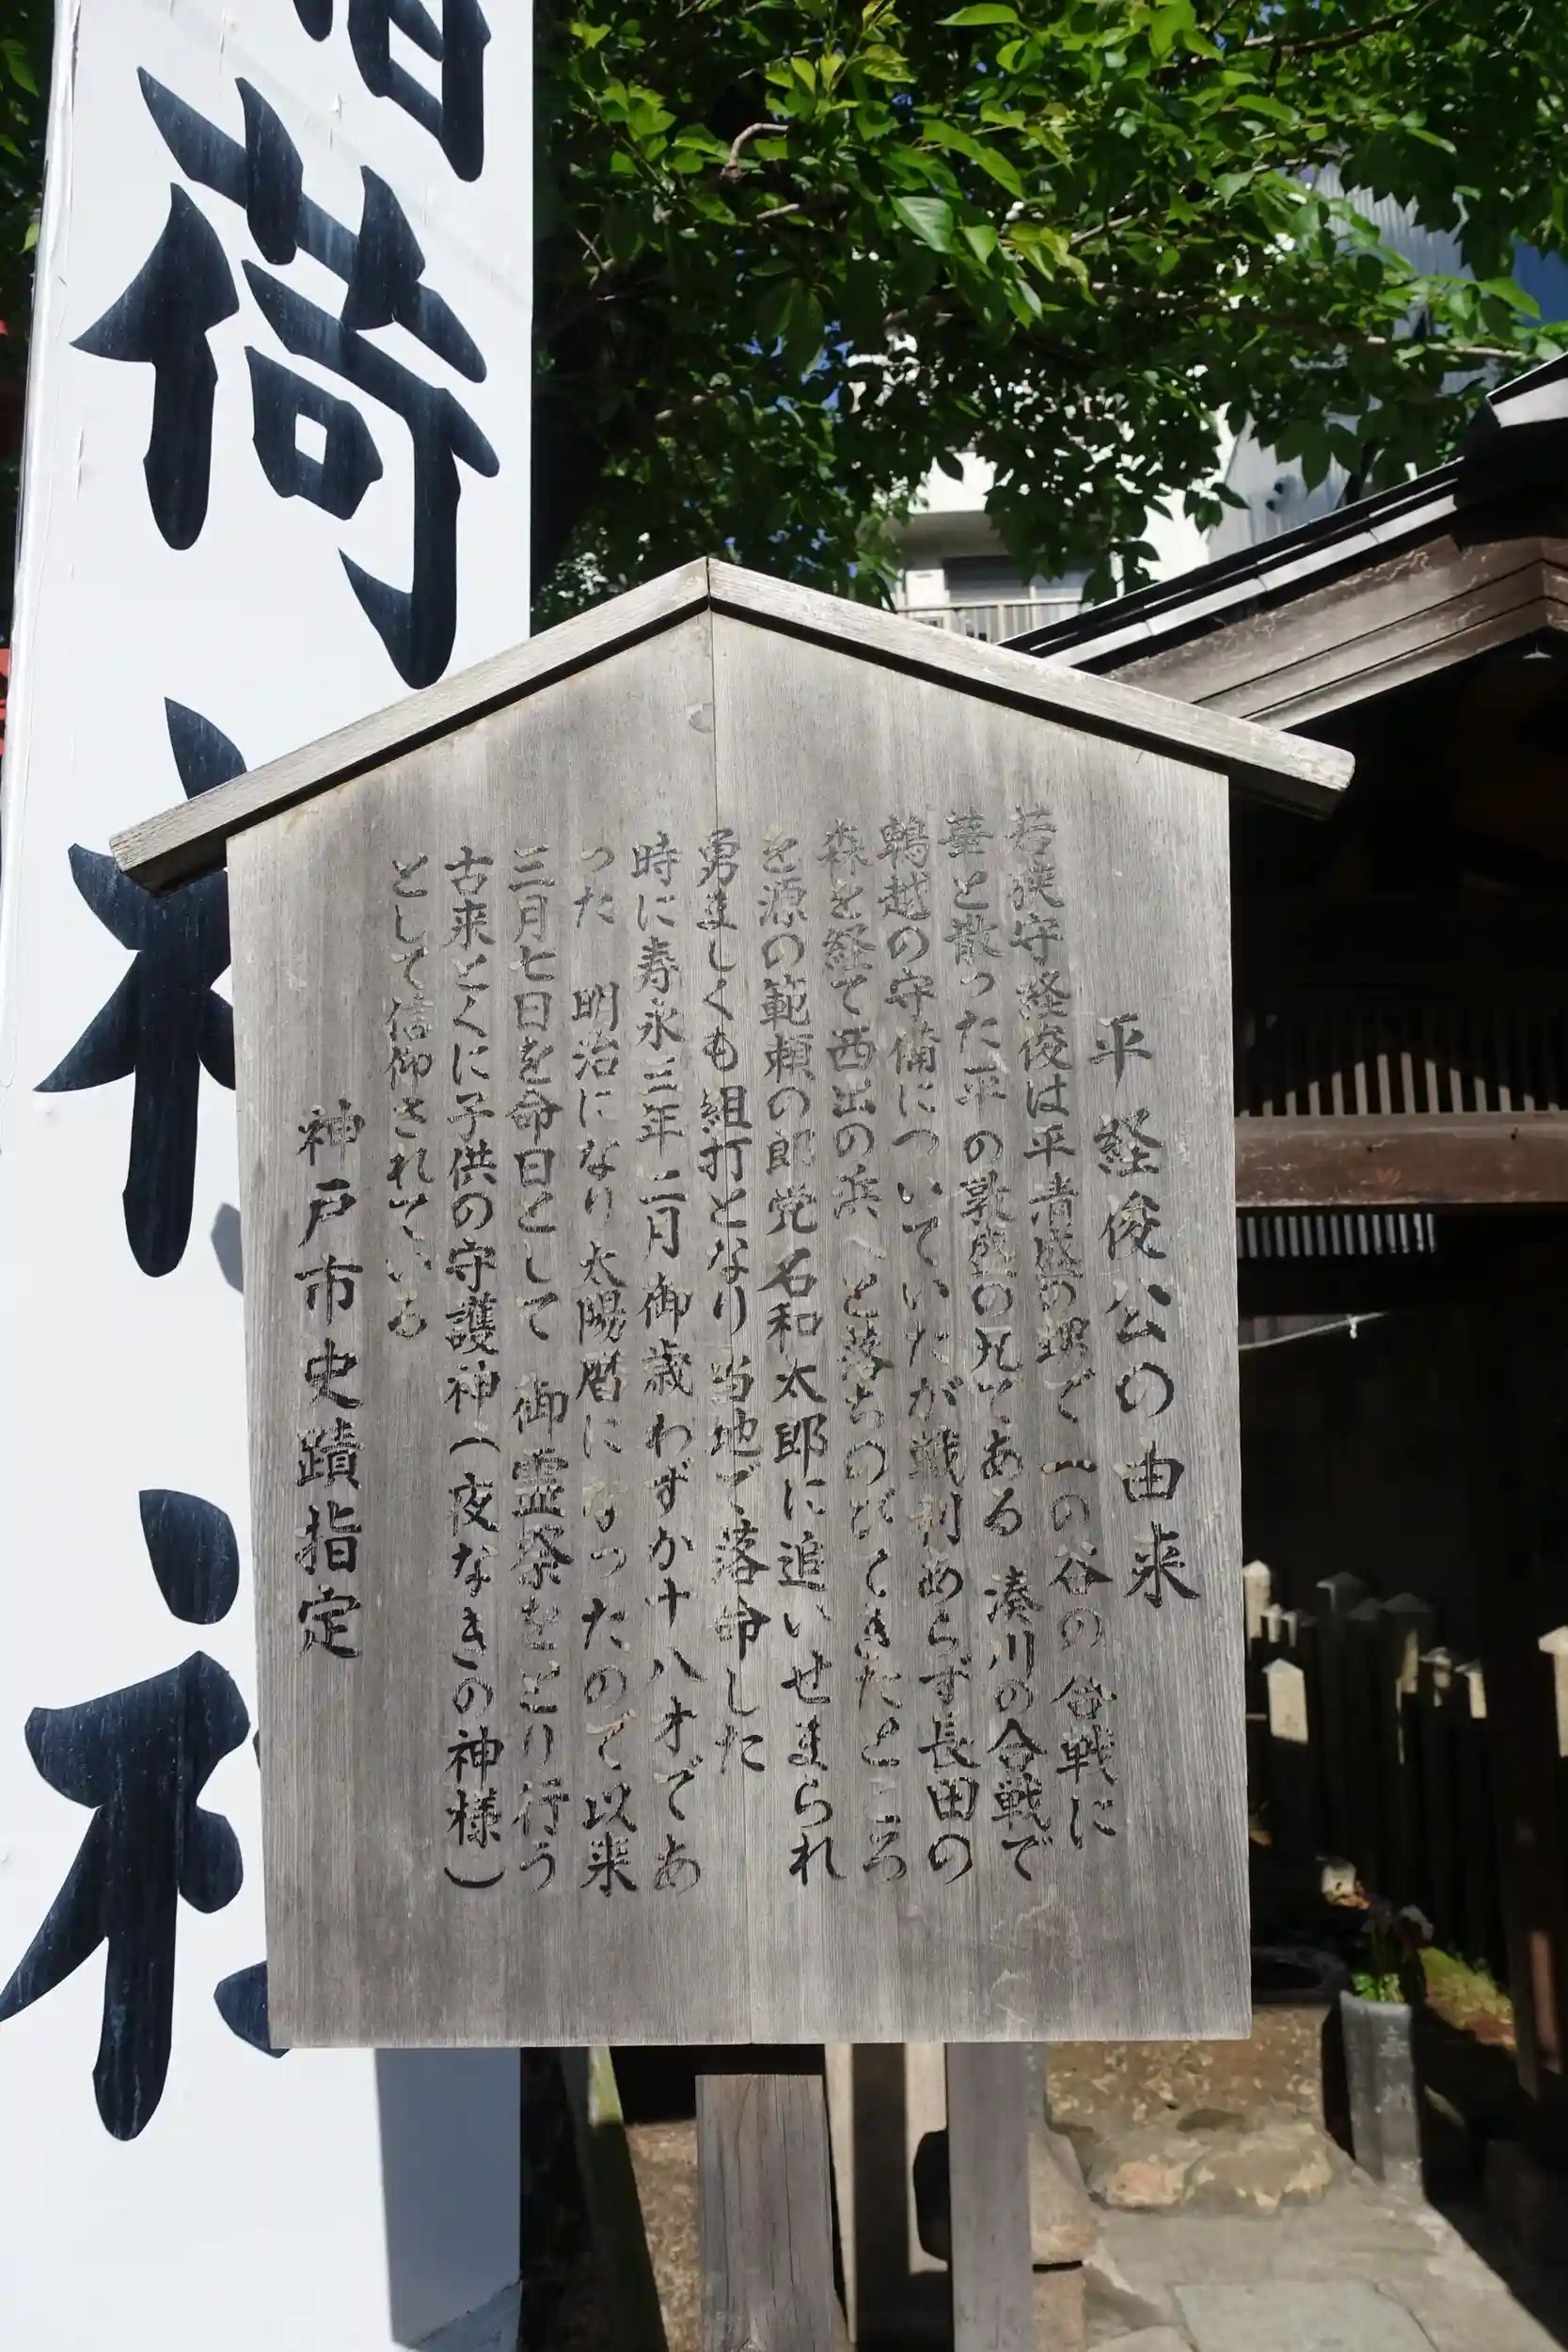 平 経俊公の由来
若狭守経俊は平清盛の甥で一の谷の合戦に
華と散った平の敦盛の兄である 湊川の合戦で
鵯越の守備についていたが戦利あらず長田の
森を経て西出の浜へと落ちのびてきたところ
を源の範頼の郎党名和太郎に追いせまられ
勇ましくも組打となり当地で落命した
時に寿永三年二月御歳わずか十八才であ
った 明治になり太陽暦になったので以来
三月七日を命日として 御霊祭をとり行う
古来とくに子供の守護神(夜なきの神様)
として信仰されている
神戸市史蹟指定
稲荷神社